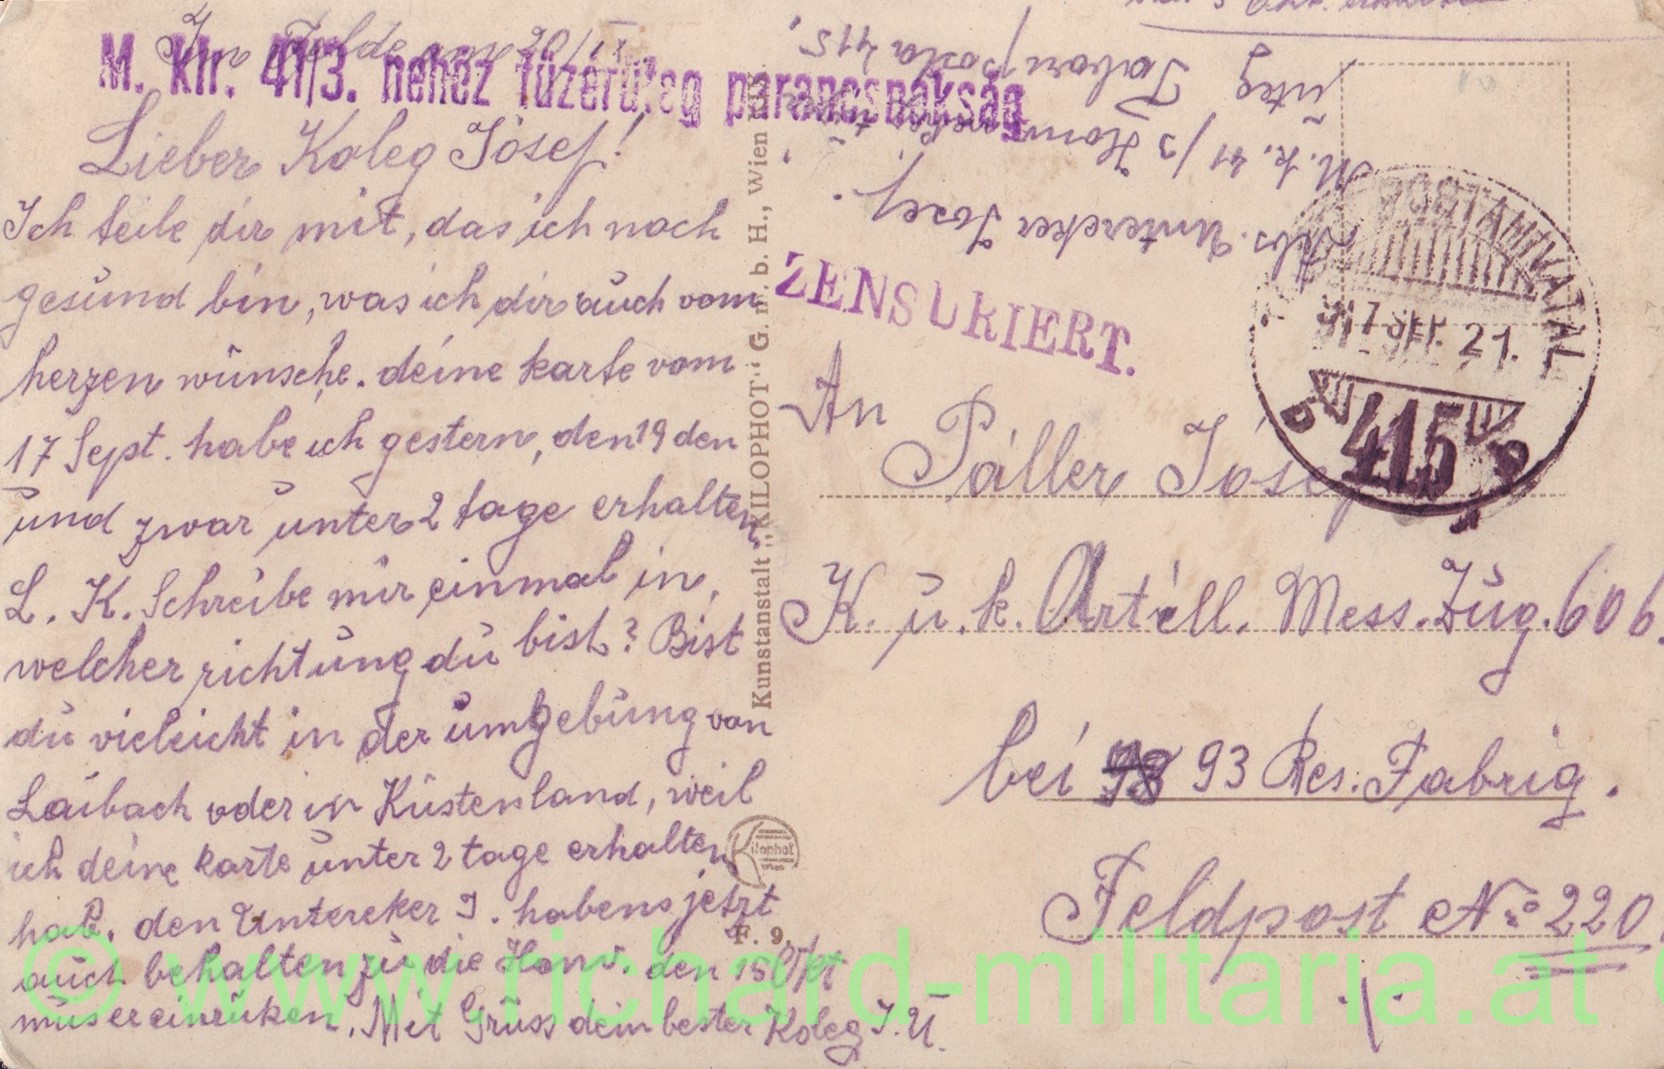 Im Felde am 20/
M. kir. 41/3. nehéz tüzérüteg parancsnokság
Lieber Koleg Jósef!
Ich teile dir mit, das ich noch
gesund bin, was ich dir auch vom
herzen wünsche. deine karte vom
17 Sept. habe ich gestern, den 19 den
und zwar unter 2 tage erhalten.
L. K. Schreibe mir einmal in,
welcher richtung du bist? Bist
du vieleicht in der umgebung von
Laibach oder in Küstenland, weil
ich deine karte unter 2 tage erhalten
hab. den Untereker J. habens jetzt
auch behalten zu die Honv. den 15 Okt
muser einrüken. Mit Gruss dein bester Koleg J. U.
Kunstanstalt „KILOPHOT“ G. m. b. H., Wien
Kilophot
Wien
F. 9.
Abs. Untereker Jozef.
M. k. 41/3 Honv.
üteg Tabori posta 415,
ZENSURIERT.
TÁBORI POSTAHIVATAL
21.
415
An
Páller Jóse
K. u. k. Artill. Mess. Zug. 606.
bei 93 Res. Fabrig.
Feldpost No 220.
© www.richard-militaria.at ©